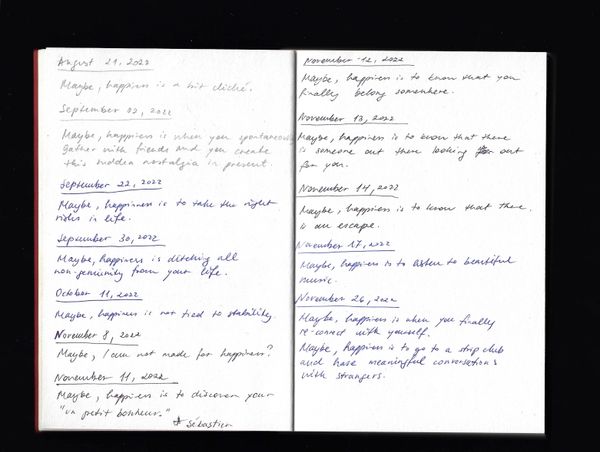 August 21, 2022
Maybe, happiness is a bit cliché.
September 02, 2022
Maybe, happiness is when you spontaneously
gather with friends and you create
this sudden nostalgia in present.
September 22, 2022
Maybe, happiness is to take the right
risks in life.
September 30, 2022
Maybe, happiness is ditching all
non-genuinity from your life.
October 11, 2022
Maybe, happiness is not tied to stability
November 8, 2022
Maybe, I am not made for happiness?
November 11, 2022
Maybe, happiness is to discover your
"un petit bonheur."
* Sébastien
November 12, 2022
Maybe, happiness is to know that you
finally belong somewhere.
November 13, 2022
Maybe, happiness is to know that there
is someone out there looking out
for you.
November 14, 2022
Maybe, happiness is to know that there
is an escape.
November 17, 2022
Maybe, happiness is to listen to beautiful
music.
November 26, 2022
Maybe, happiness is when you finally
re-connect with yourself.
Maybe, happiness is to go to a strip club
and have meaningful conversations
with strangers.